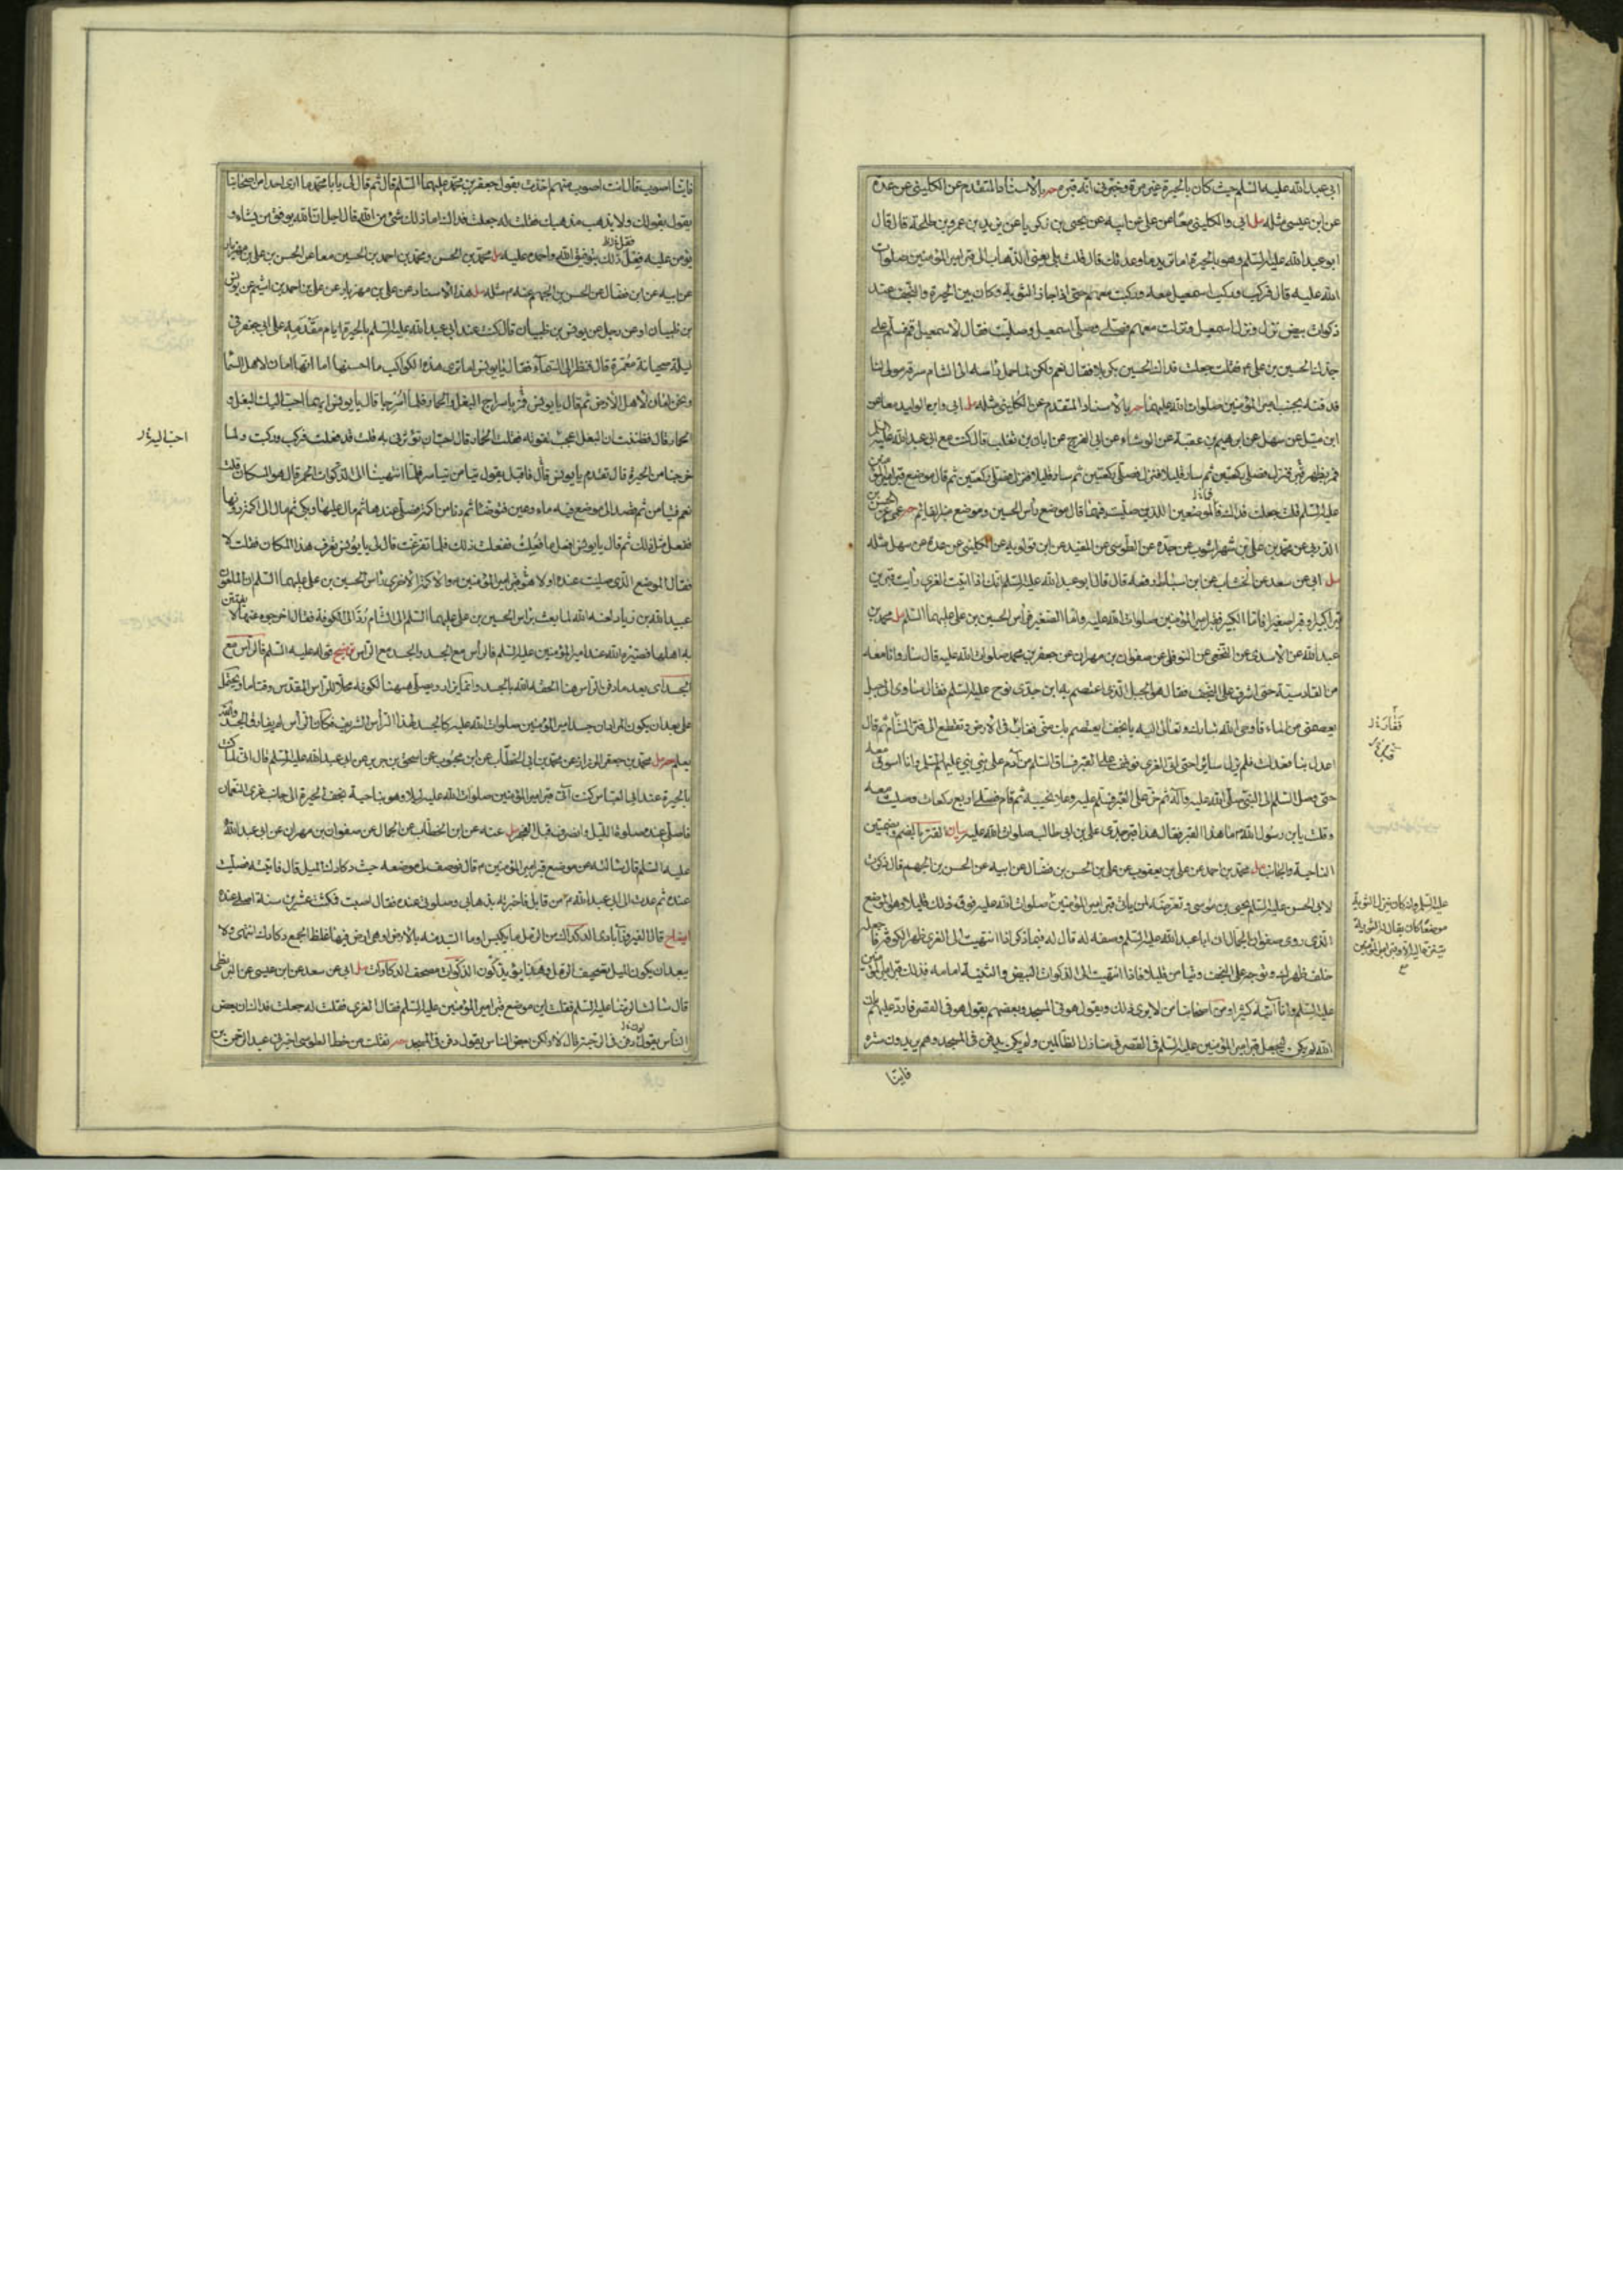 ابي عبد الله عليه السلم حيث كان بالحيرة غير مرة وخبرني انه قبره حه بالاسناد المتقدم عن الكليني عن عدة
عن ابن عيسى مثله مل ابي والكليني معا عن علي عن ابيه عن يحيى بن زكريا عن يزيد بن عمرو بن طلحة قال قال
ابو عبد الله عليه السلم وهو بالحيرة اما تريد ما وعدتك قال قلت بلى يعني الذهاب الى قبر امير المؤمنين صلوات
الله عليه قال فركب وركب اسمعيل معه وركبت معهم حتى اذا جاز الثوية وكان بين الحيرة والنجف عند
ذكوات بيض نزل ونزل اسمعيل ونزلت معهم فصلى وصلى اسمعيل وصليت فقال لاسمعيل قم فسلم على
جدك الحسين بن علي فقلت جعلت فداك اليس الحسين بكربلا فقال نعم ولكن لما حمل راسه الى الشام سرقه مولى لنا
فدفنه بجنب امير المؤمنين صلوات الله عليهما حه بالاسناد المتقدم عن الكليني مثله مل ابي وابن الوليد معا عن
ابن متيل عن سهل عن ابرهيم بن عقبة عن الوشاء عن ابي الفرج عن ابان بن تغلب قال كنت مع ابي عبد الله عليه السلم
فمر بظهر الكوفة فنزل فصلى ركعتين ثم سار قليلا فنزل فصلى ركعتين ثم سار قليلا فنزل فصلى ركعتين ثم قال موضع قبر امير المؤمنين
عليه السلم قلت جعلت فداك فالموضعين اللذين صليت فيهما قال موضع راس الحسين وموضع منبر القائم حه عمي عن الحسن بن
الدربي عن محمد بن علي بن شهراشوب عن جده عن الطوسي عن المفيد عن ابن قولويه عن الكليني عن عدة عن سهل مثله
مل ابي عن سعد عن الخشاب عن ابن اسباط رفعه قال قال ابو عبد الله عليه السلم انك اذا اتيت الغري رايت قبرين
قبرا كبيرا وقبرا صغيرا فاما الكبير فقبر امير المؤمنين صلوات الله عليه واما الصغير فراس الحسين بن علي عليهما السلم مل محمد بن
عبد الله عن الاسدي عن النخعي عن النوفلي عن صفوان بن مهران عن جعفر بن محمد صلوات الله عليه قال سار وانا معه
من القادسية حتى اشرف على النجف فقال هو الجبل الذي اعتصم به ابن جدي نوح عليه السلم فقال ساوي الى جبل
يعصمني من الماء فاوحى الله تبارك وتعالى اليه يا نجف ايعتصم بك مني فغاب في الارض وتقطع الى قطر الشام ثم قال
اعدل بنا فعدلت فلم يزل سائرا حتى اتى الغري فوقف على القبر فساق السلم من آدم على نبي نبي عليهم السلم وانا اسوق معه
حتى وصل السلم الى النبي صلى الله عليه وآله ثم خر على القبر فسلم عليه وعلا نحيبه ثم قام فصلى اربع ركعات وصليت معه
وقلت يابن رسول الله ما هذا القبر فقال هذا قبر جدي علي بن ابي طالب صلوات الله عليه بيان القتر بالضم وبضمتين
الناحية والجانب مل محمد بن احمد عن علي بن يعقوب عن علي بن الحسن بن فضال عن ابيه عن الحسن بن الجهم قال ذكرت
لابي الحسن عليه السلم يحيى بن موسى وتعرضه لمن ياتي قبر امير المؤمنين صلوات الله عليه
الذي روى صفوان الجمال ان ابا عبد الله عليه السلم وصفه له قال له فيما ذكر اذا انتهيت الى الغري ظهر الكوفة فاجعله
خلف ظهرك وتوجه على النجف وتيامن قليلا فاذا انتهيت الى الذكوات البيض والثنية امامه فذلك قبر امير المؤمنين
عليه السلم وانا آتيه كثيرا ومن اصحابنا من لا يرى ذلك ويقول هو في المسجد وبعضهم يقول هو في القصر فارد عليهم بان
الله لم يكن ليجعل قبر امير المؤمنين عليه السلم في القصر في منازل الظالمين ولم يكن يدفن في المسجد وهم يريدون ستره
فاينا
فاينا اصوب قال انت اصوب منهم اخذت بقول جعفر بن محمد عليهما السلم قال ثم قال لي يابا محمد ما ارى احدا من اصحابنا
يقول بقولك ولا يذهب مذهبك فقلت له جعلت فداك اما ذلك شئ من الله قال اجل ان الله يوفق من يشاء و
يؤمن عليه فقل ذلك بتوفيق الله واحمده عليه مل محمد بن الحسن ومحمد بن احمد بن الحسين معا عن الحسن بن علي بن مهزيار
عن ابيه عن ابن فضال عن الحسن بن الجهم عنه م مثله مل بهذا الاسناد عن علي بن مهزيار عن علي بن احمد بن اشيم عن يونس
بن ظبيان او عن رجل عن يونس بن ظبيان قال كنت عند ابي عبد الله عليه السلم بالحيرة ايام مقدمه على ابي جعفر في
ليلة صحيانة مقمرة قال فنظر الى السماء فقال يا يونس اما ترى هذه الكواكب ما احسنها اما انها امان لاهل السما
ونحن امان لاهل الارض ثم قال يا يونس فمر باسراج البغل والحمار فلما اسرجا قال يا يونس ايهما احب اليك البغل او
الحمار قال فظننت ان البغل اعجب لقوته فقلت الحمار قال احب ان تؤثرني به قلت قد فعلت فركب وركبت ولما
خرجنا من الحيرة قال تقدم يا يونس قال فاقبل يقول تيامن تياسر فلما انتهينا الى الذكوات الحمر قال هو المكان قلت
نعم فتيامن ثم قصد الى موضع فيه ماء وعين فتوضا ثم دنا من اكمة فصلى عندها ثم مال عليها وبكى ثم مال الى اكمة دونها
ففعل مثل ذلك ثم قال يا يونس افعل ما فعلت ففعلت ذلك فلما تفرغت قال لي يا يونس تعرف هذا المكان فقلت لا
فقال الموضع الذي صليت عنده اولا هو قبر امير المؤمنين م والاكمة الاخرى راس الحسين بن علي عليهما السلم ان الملعون
عبيد الله بن زياد لعنه الله لما بعث براس الحسين بن علي عليهما السلم الى الشام رد الى الكوفة فقال اخرجوه عنها لا يفتتن
به اهلها فصيره الله عند امير المؤمنين عليه السلم فالراس مع الجسد والجسد مع الراس توضيح قوله عليه السلم فالراس مع
الجسد اي بعد ما دفن الراس هنا الحقه الله بالجسد
يعلم حه مل محمد بن جعفر الرزاز عن محمد بن ابي الخطاب عن ابن محبوب عن اسحق بن جرير عن ابي عبد الله عليه السلم قال اني لما كنت
بالحيرة عند ابي العباس كنت آتي قبر امير المؤمنين صلوات الله عليه ليلا وهو بناحية نجف الحيرة الى جانب غري النعمان
فاصلي عنده صلوة الليل وانصرف قبل الفجر مل عنه عن ابن الخطاب عن الجمال عن صفوان بن مهران عن ابي عبد الله
عليه السلم قال سالته عن موضع قبر امير المؤمنين م قال فوصف لي موضعه حيث دكادك الميل قال فاتيته فصليت
عنده ثم عدت الى ابي عبد الله م من قابل فاخبرته بذهابي وصلوتي عنده فقال اصبت فمكثت عشرين سنة اصلي عنده
ايضاح قال الفيروزآبادي الدكداك من الرمل ما تكبس او ما التبد منه بالارض او هي ارض فيها غلظ الجمع دكادك انتهى ولا
يبعد ان يكون الميل تصحيف الرمل مل ابي عن سعد عن ابن عيسى عن البزنطي
قال سالت الرضا عليه السلم فقلت اين موضع قبر امير المؤمنين عليه السلم فقال الغري فقلت له جعلت فداك ان بعض
الناس يقول دفن في الرحبة قال لا ولكن بعض الناس يقول دفن في المسجد حه نقلت من خط الطوسي اخبرني عبد الرحمن بن
احب اليه